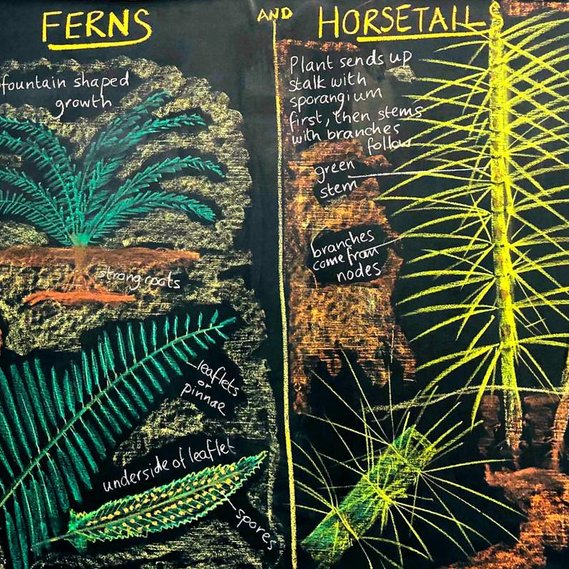 FERNS
AND
HORSETAILS
fountain shaped
growth
strong roots
leaflets
or
pinnae
underside of leaflet
spores
Plant sends up
stalk with
sporangium
first, then stems
with branches
follow
green
stem
branches
come from
nodes